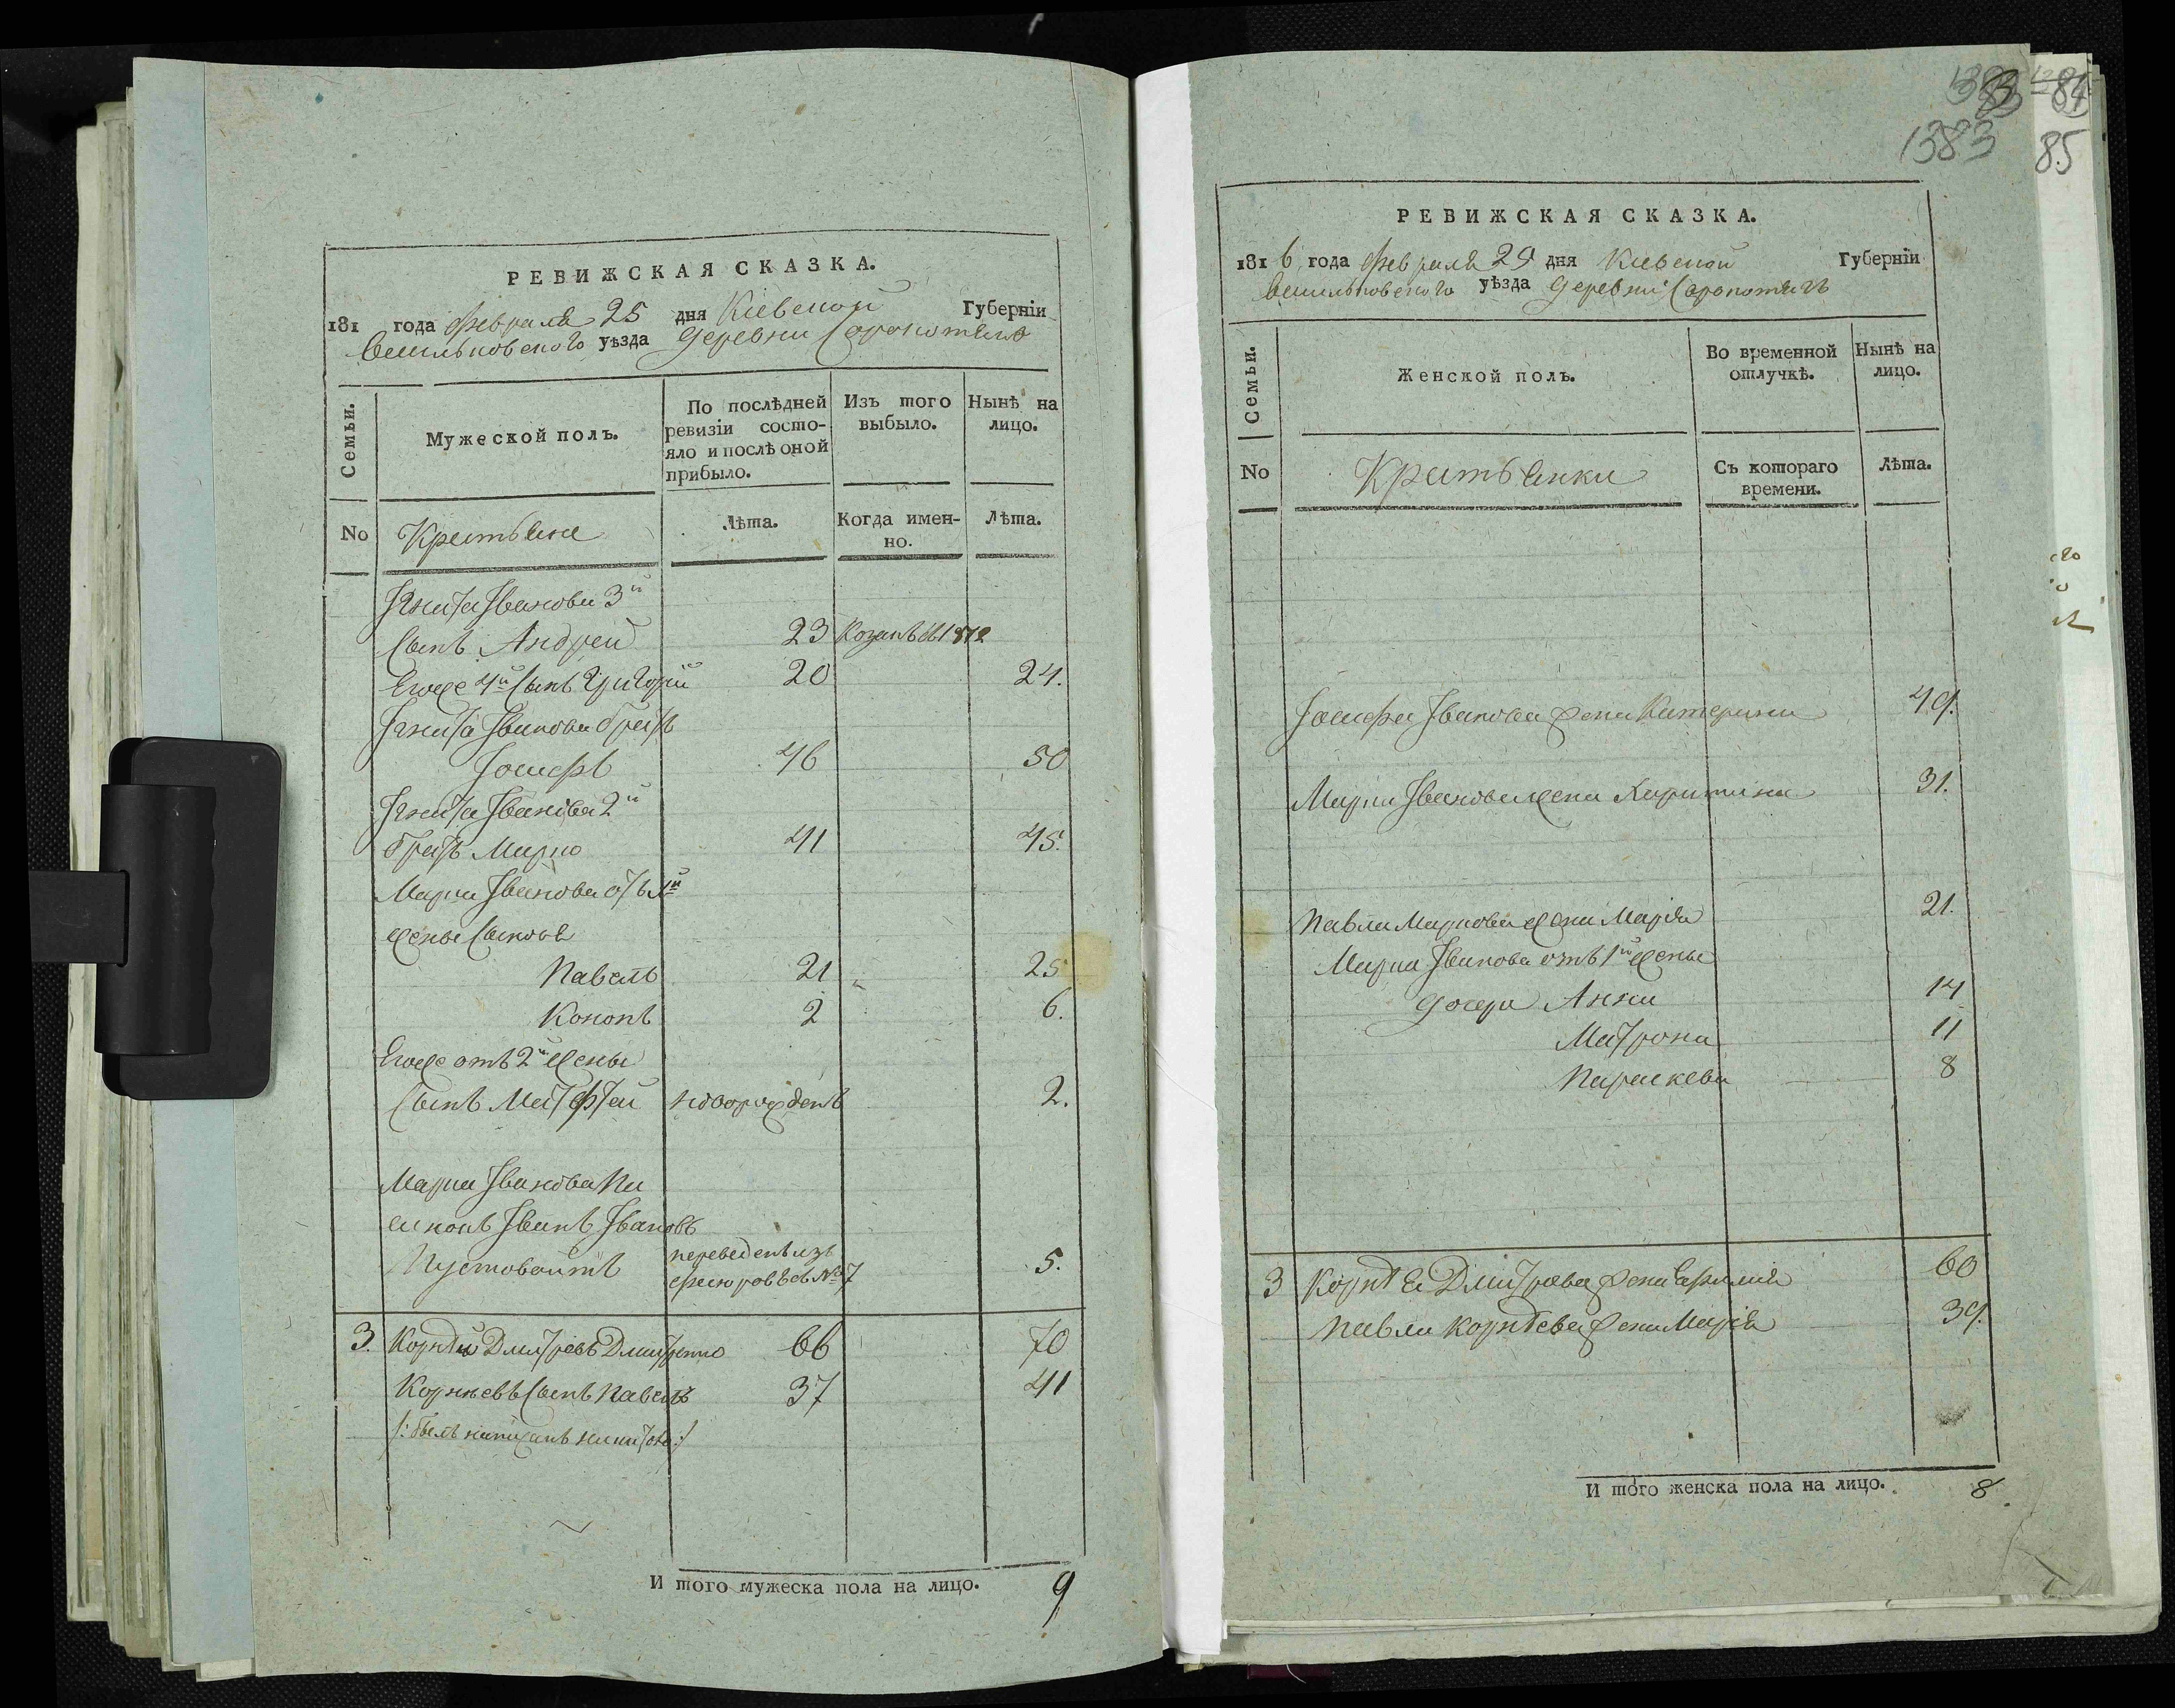 РЕВИЖСКАЯ СКАЗКА.
181 года февраля 25 дня Кіевской Губерніи
Васильковского уѣзда деревни Соропотяго
Семьи.
Мужеской полъ.
По послѣдней ревизіи состояло и послѣ оной прибыло.
Изъ того выбыло.
Нынѣ на лицо.
No Крестьяне Лѣта. Когда именно. Лѣта.
Игната Иванова 3й
сынъ Андрей 23 1812
Егоже 4й сынъ Григорій 20 24.
Игната Иванова братъ
Іосифъ 46 50
Игната Иванова 2й
братъ Марко 41 45.
Марка Иванова отъ 1й
жены сыновя
Павелъ 21 25
Кононъ 2 6.
Егоже отъ 2й жены
сынъ Матфтей новорожденъ 2.
Марка Иванова па
синокъ Иванъ Ивановъ
Пустовойтъ переведенъ изъ №7 5.
3. Корнѣй Дмитревъ Дмитренко 66 70
Корнѣевъ сынъ Павелъ 37 41
/: былъ написанъ :/
И того мужеска пола на лицо. 9
1383 84
1383 85
РЕВИЖСКАЯ СКАЗКА.
1816 года февраля 29 дня Кіевской Губерніи
Васильковского уѣзда деревни Соропотягъ
Семьи.
Женской полъ.
Во временной отлучкѣ.
Нынѣ на лицо.
No Крестьянки Съ котораго времени. Лѣта.
Іосифа Иванова жена Катерина 49.
Марка Иванова жена Харитина 31.
Павла Маркова жена Марія 21.
Марка Иванова отъ 1й жены
дочери Анна 14
Матрона 11
Параскева 8
3 Корнѣя Дмитрова жена Ефимия 60
Павла Корнѣева жена Марія 39.
И того женска пола на лицо. 8.